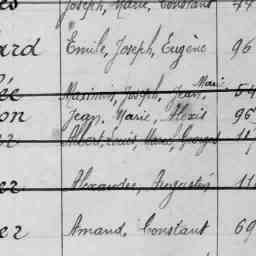 Joseph, Marie, Constant
ard Emile, Joseph, Eugène 96
ée Maximin, Joseph, Jean, Marie 54
on Jean, Marie, Alexis 95
Albert, Louis, Marie, Georges
ez Alexandre, Augustin 11
ez Amand, Constant 69